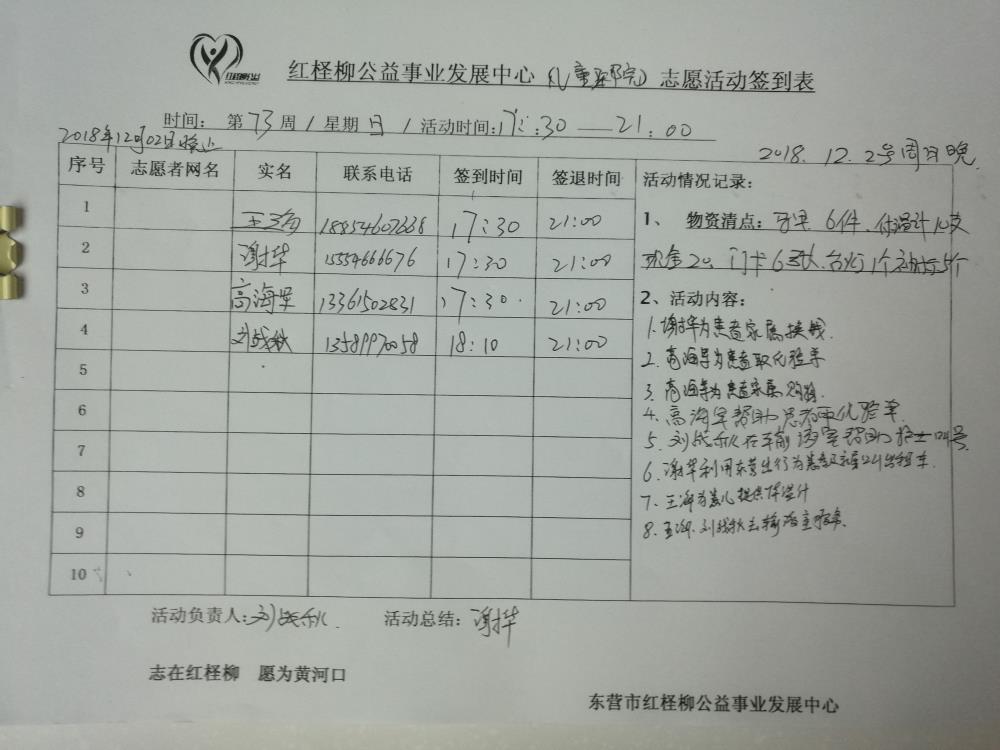 红柽柳公益事业发展中心（儿童医院）志愿活动签到表
时间： 第 73 周 / 星期 日 / 活动时间：17：30 — 21：00
2018年12月02日晚上
2018. 12. 2号周日晚
序号 志愿者网名 实名 联系电话 签到时间 签退时间 活动情况记录：
1 18854607668 17:30 21:00
2 谢华 15554666676 17:30 21:00
3 高海军 13361502831 17:30 21:00
4 刘战秋 13589970058 18:10 21:00
5
6
7
8
9
10
1、 物资清点： 6件、体温计10支
现金20、门卡6 1个 5个
2、活动内容：
1. 谢华为患者家属换钱.
2. 高海军为患者取化验单
3. 高海军为患者家属
4. 高海军帮助患者取化验单.
5. 刘战秋在 帮助护士叫号.
6. 谢华利用东营出行为患者家属叫出租车.
7. 王 为患儿提供体温计
8. 刘战秋去输液室
活动负责人：刘战秋. 活动总结：谢华
志在红柽柳 愿为黄河口
东营市红柽柳公益事业发展中心